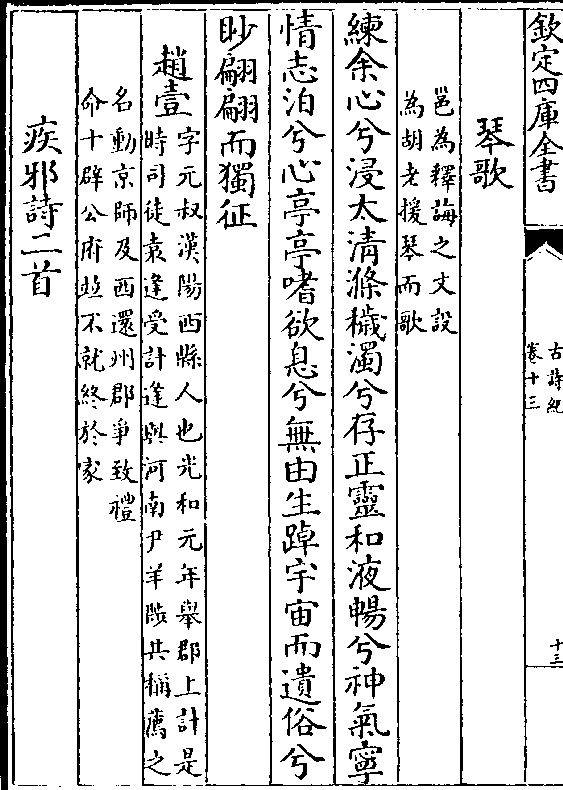 欽定四庫全書
古詩紀
卷十三
十三
琴歌
邕為釋誨之文設
為胡老援琴而歌
練余心兮浸太清滌穢濁兮存正靈和液暢兮神氣寧
情志泊兮心亭亭嗜欲息兮無由生踔宇宙而遺俗兮
眇翩翩而獨征
趙壹
字元叔漢陽西縣人也光和元年舉郡上計是
時司徒袁逢受計逢與河南尹羊陟共稱薦之
名動京師及西還州郡爭致禮
命十辟公府並不就終於家
疾邪詩二首